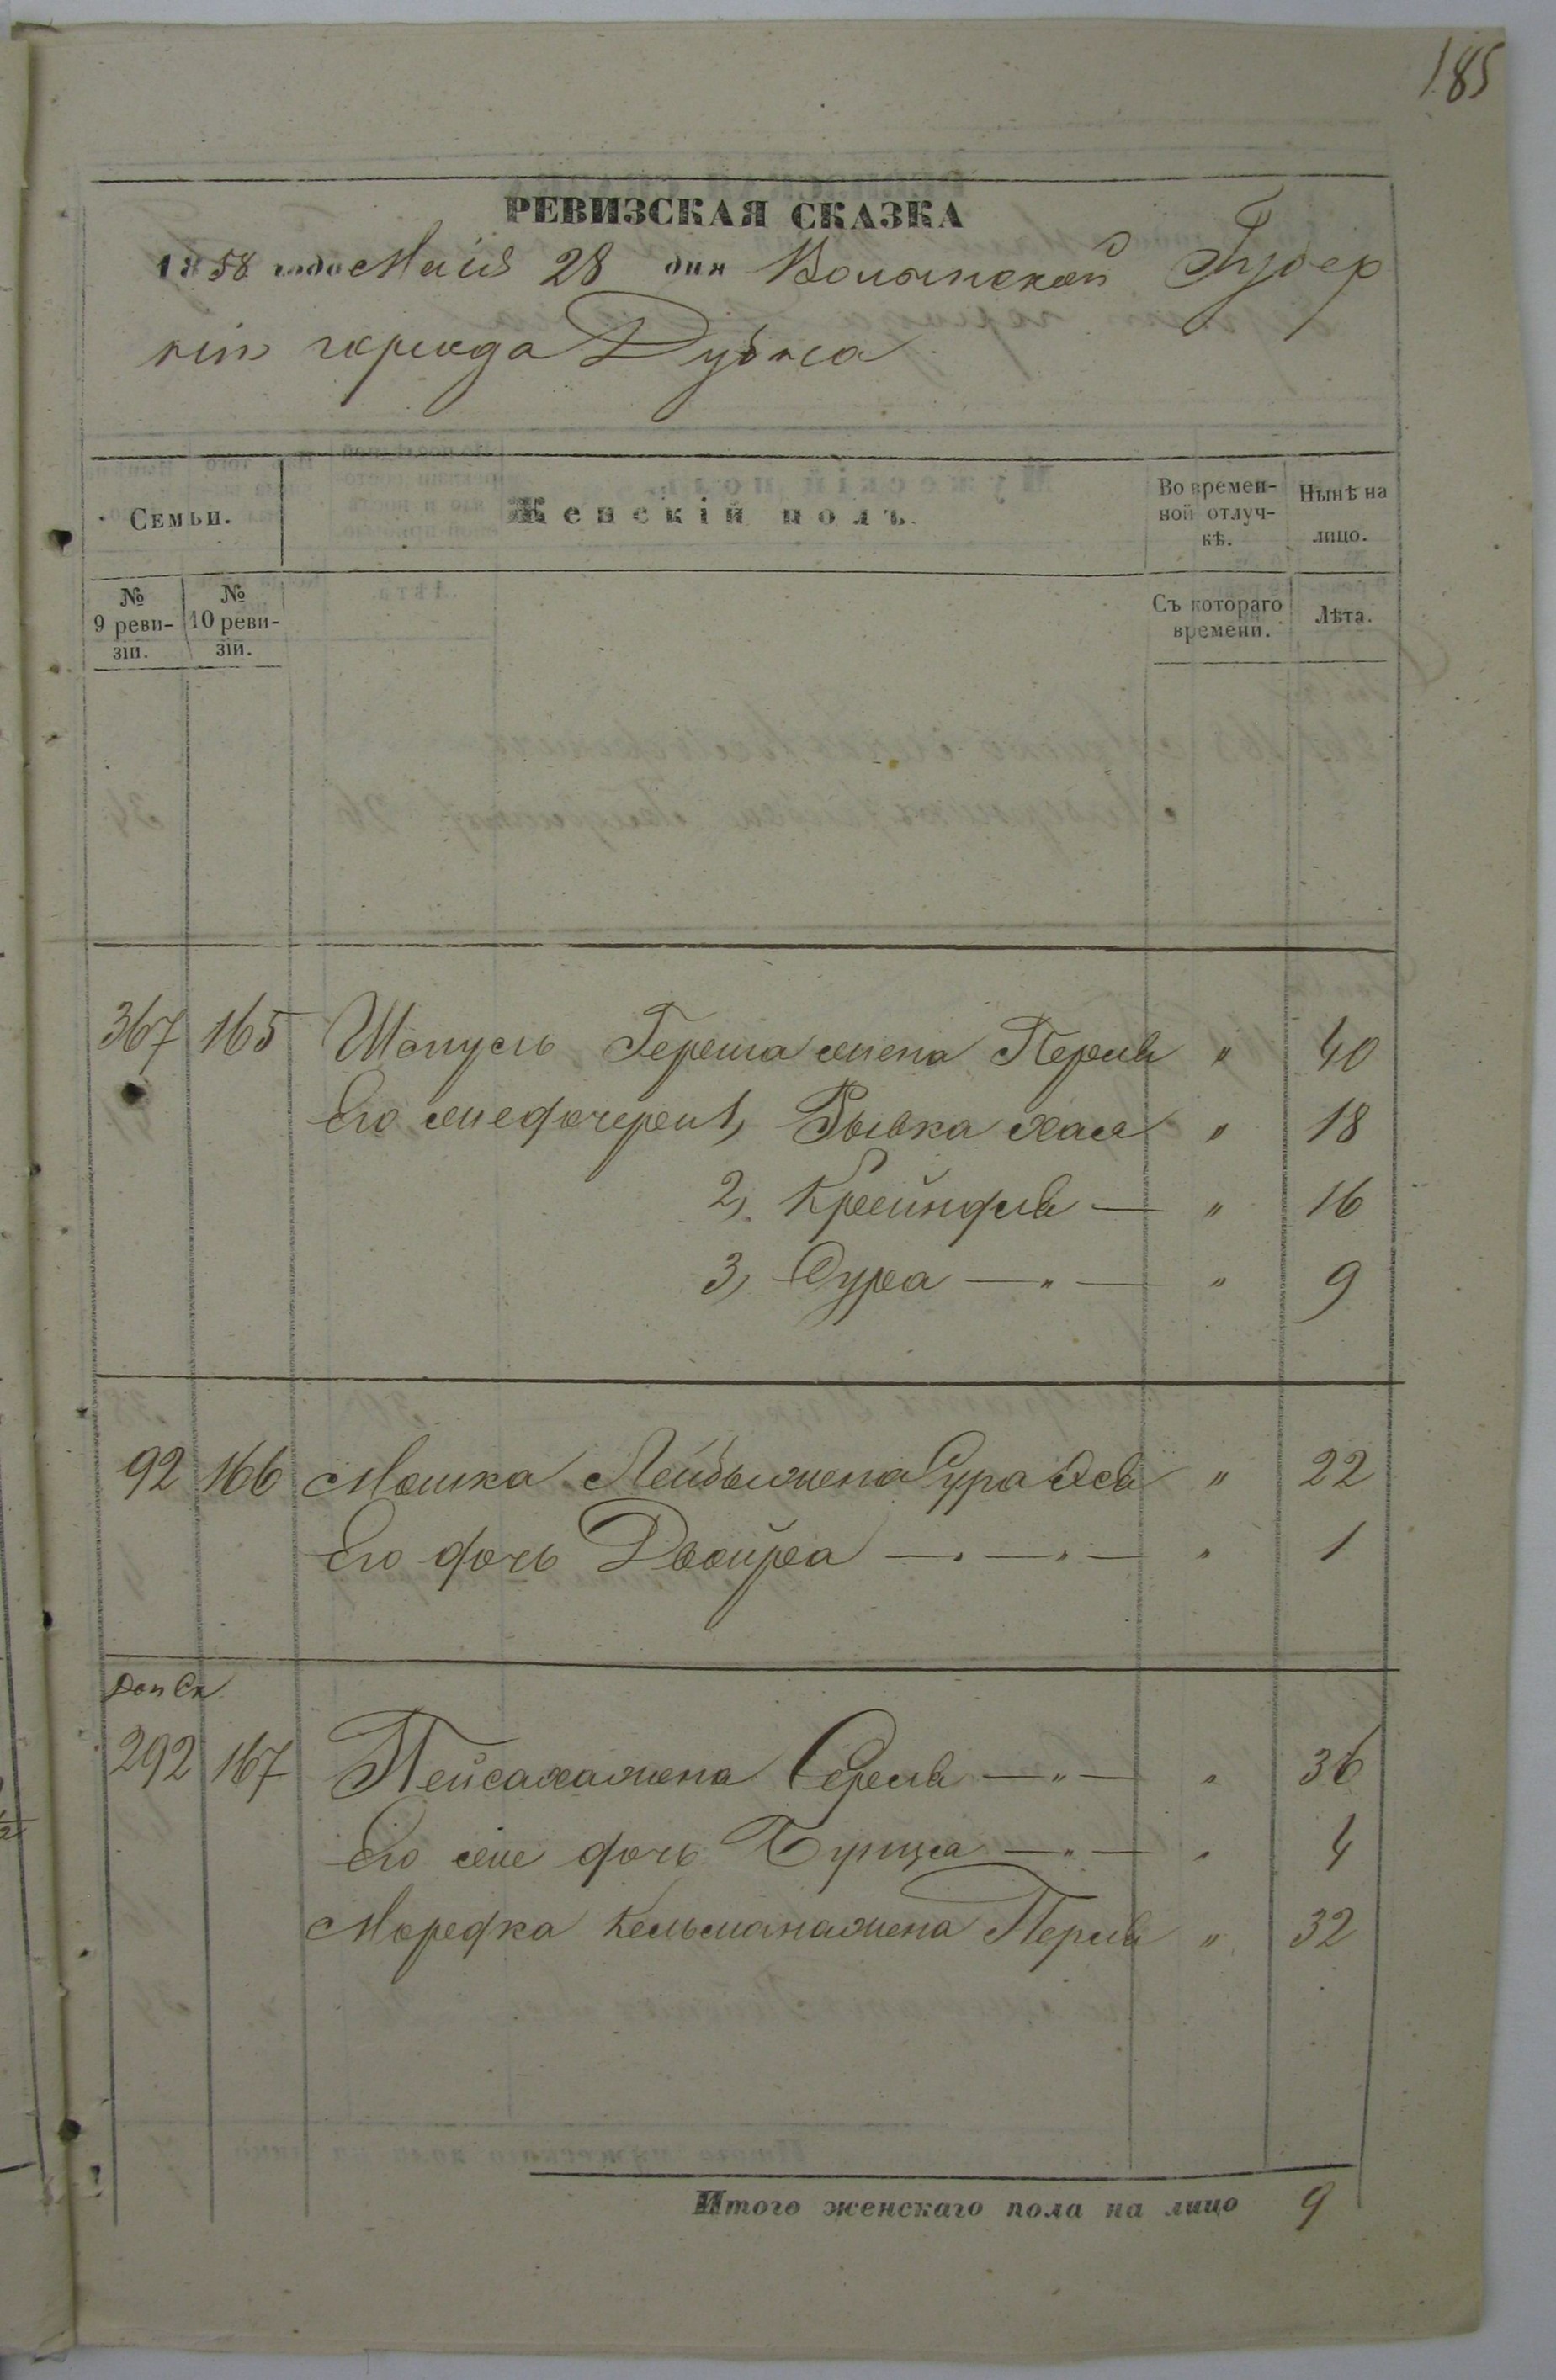 185
РЕВИЗСКАЯ СКАЗКА
1858 года Маія 28 дня Волынской Губер
ніи города Дубна
Семьи.
Женскій полъ.
Во времен-
ной отлуч-
кѣ.
Нынѣ на
лицо.
№
9 реви-
зіи.
№
10 реви-
зіи.
Съ котораго
времени.
Лѣта.
367 165 Шмуль Герша жена Перля " 40
Его же дочери 1, Рывка Хая " 18
2, Крейндля — " 16
3, Сура — " — " 9
92 166 Мошка Лейбы жена Сура Ася " 22
Его дочь Двойра — " — " — " 1
Доп Ск
292 167 Пейсаха жена Серля — " — " 36
Его же дочь Бунця — " — " 4
Мордка Кельмана жена Перля " 32
Итого женскаго пола на лицо 9